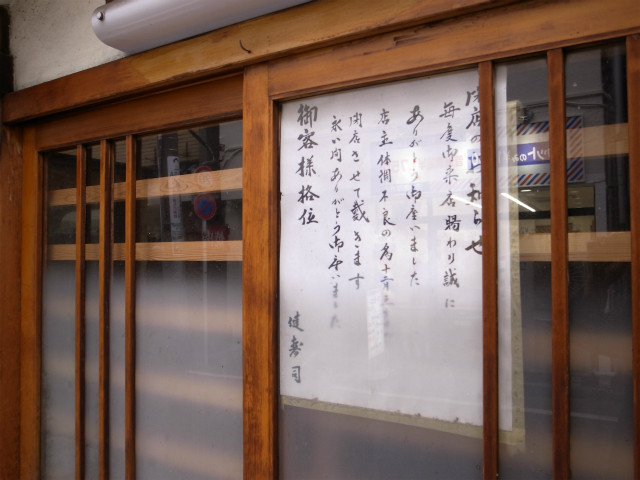 閉店のお知らせ
毎度御来店賜わり誠に
ありがとう御座いました
店主体調不良の為十二月
閉店させて戴きます
永い間ありがとう御座いました
御客様格位
健寿司
ットのみ